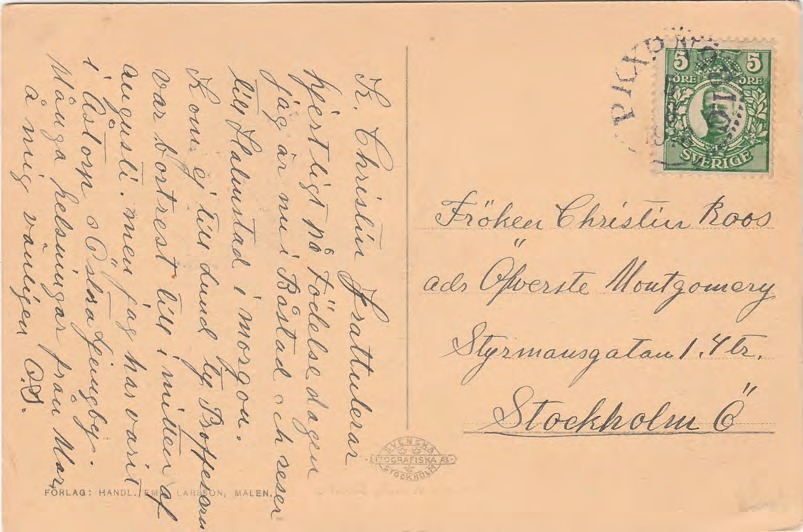 K. Christin Grattulerar
hjertligt på Födelsedagen
jag är nu i Båstad och reser
till Halmstad i morgon.
Kom ej till Lund ty
var bortrest till i mitten af
augusti. men jag har varit
i Åstorp & Östra Ljungby.
Många helsningar från Mor,
å mig vänligen
FÖRLAG: HANDL. EMIL LARSSON, MALEN.
SVENSKA
LITOGRAFISKA AB.
STOCKHOLM
5 5
ÖRE ÖRE
SVERIGE
PKXP
Fröken Christin Roos
adr Öfverste Montgomery
Styrmansgatan 1. 4 tr.
Stockholm Ö